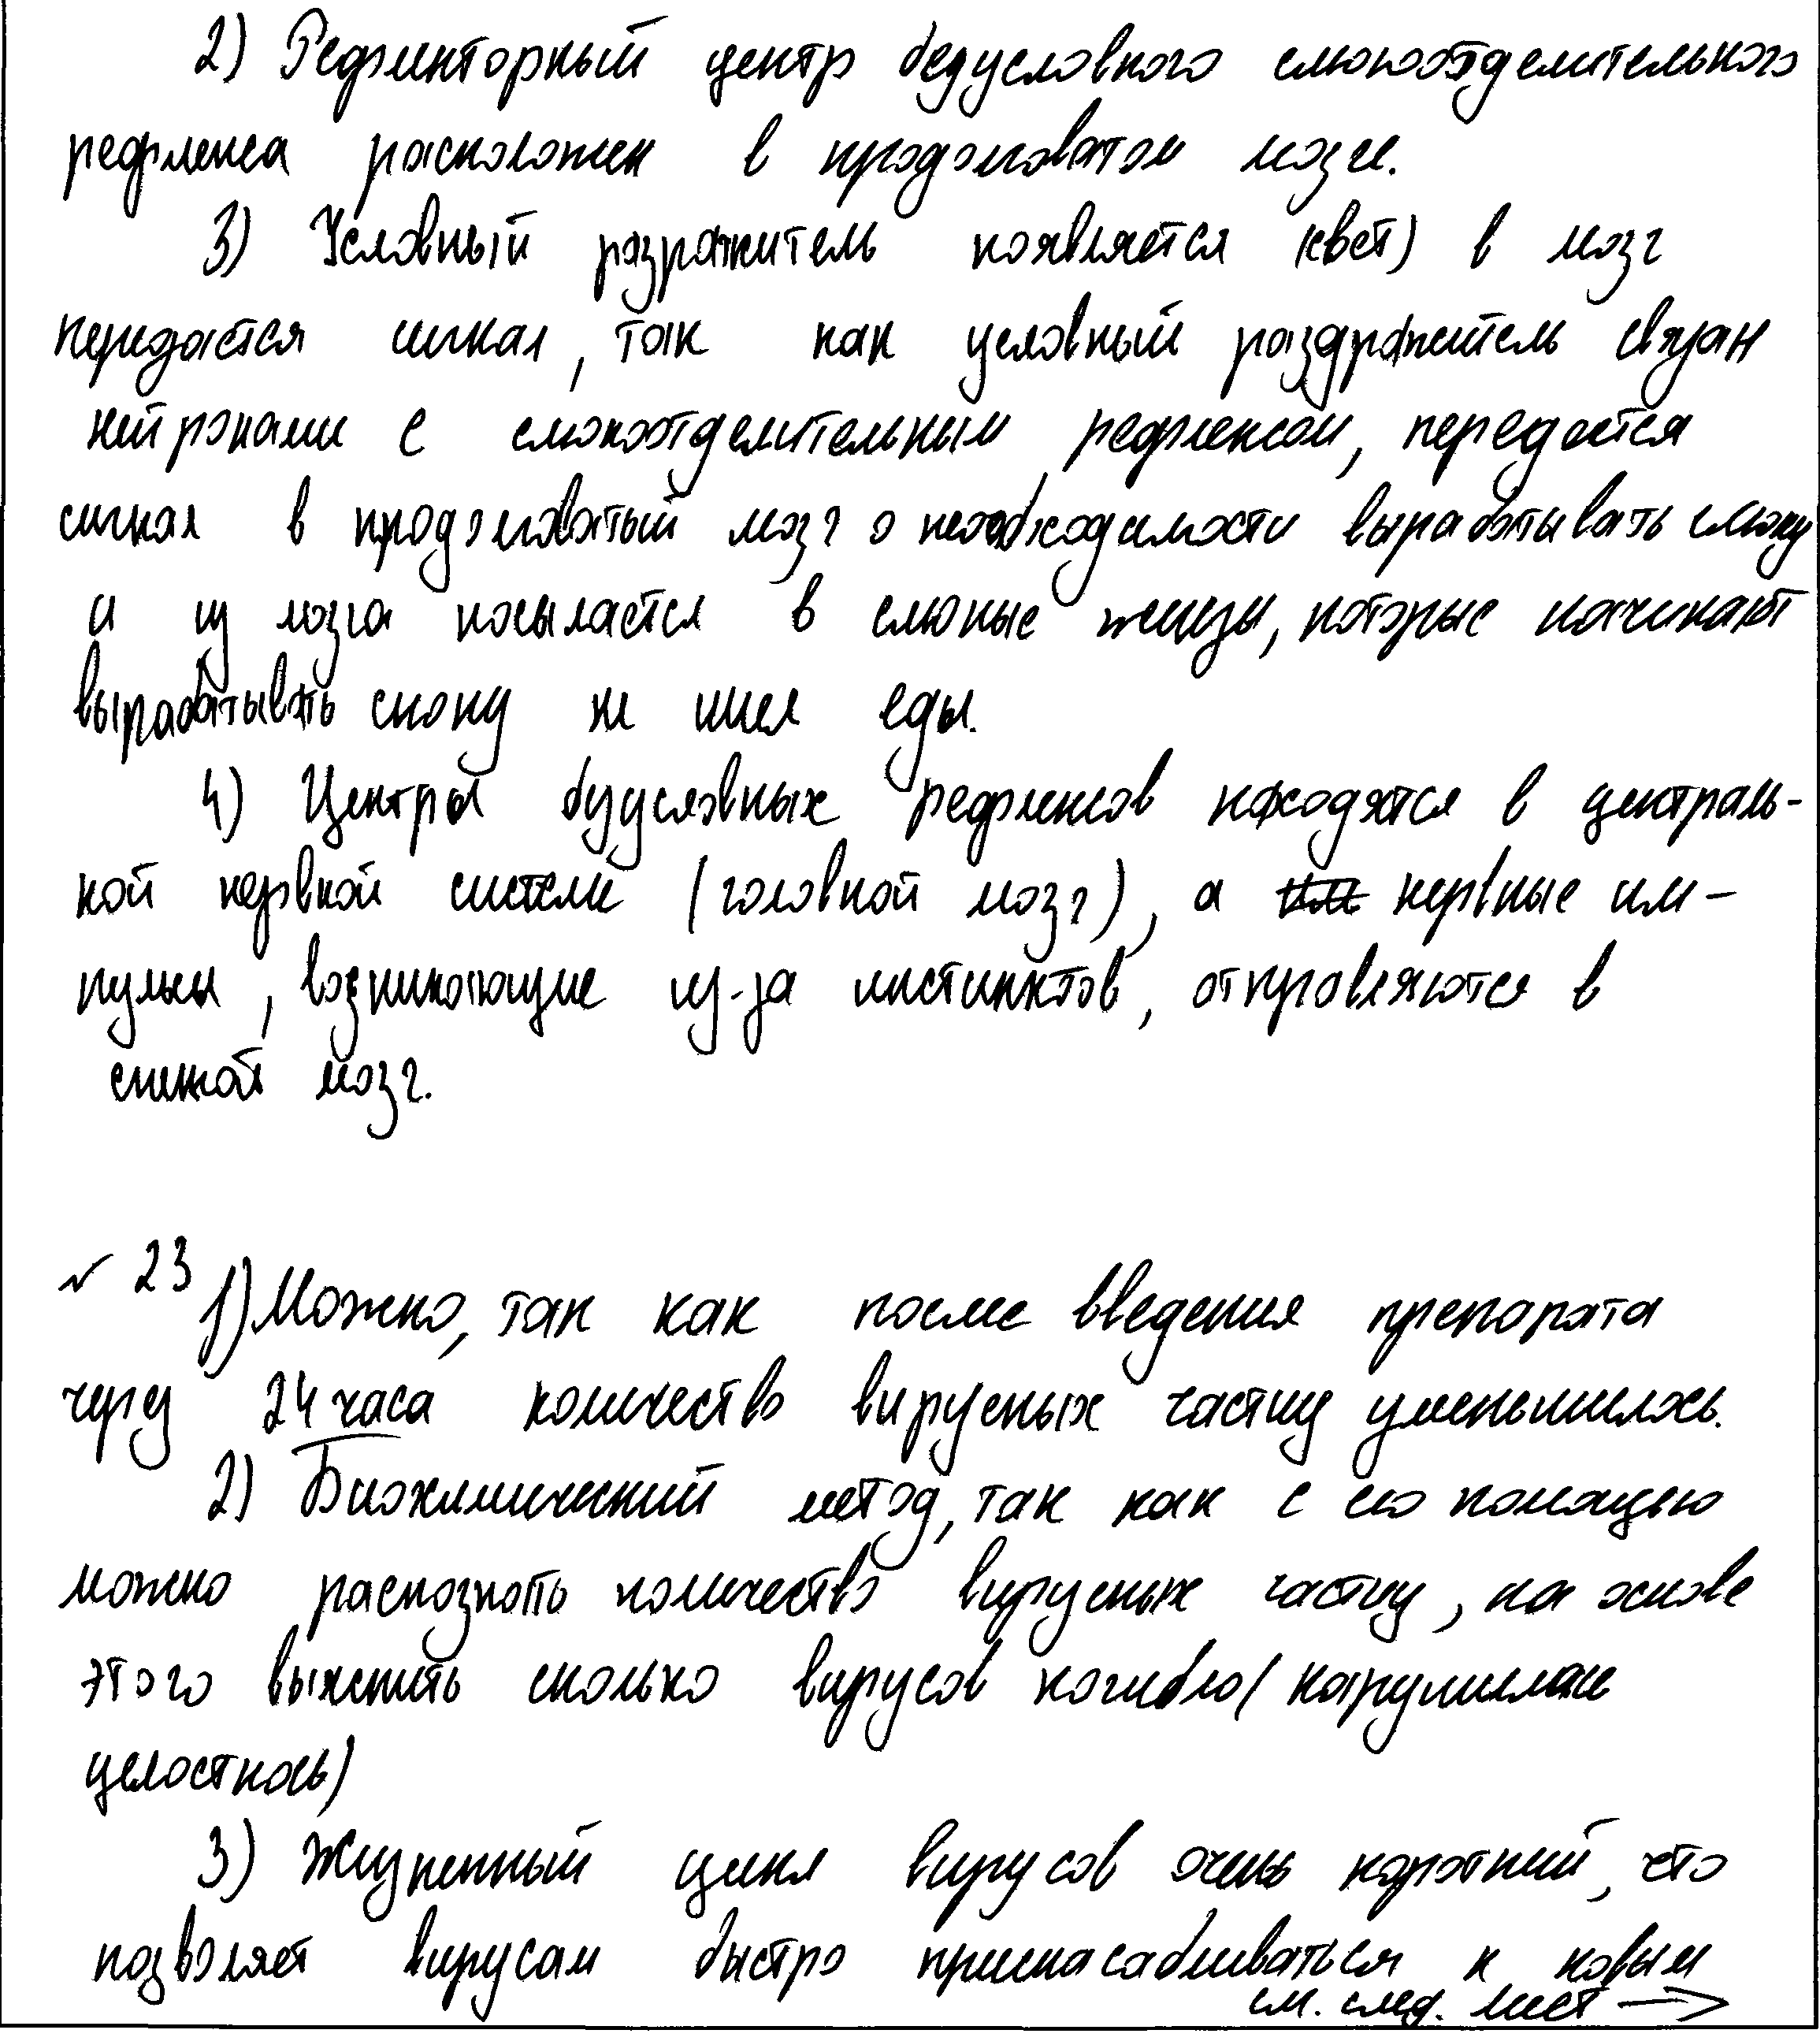 2) Рефлекторный центр безусловного слюноотделительного
рефлекса расположен в продолговатом мозге.
3) Условный раздражитель появляется (свет) в мозг
передаётся сигнал, так как условный раздражитель связан
нейронами с слюноотделительным рефлексом, передаётся
сигнал в продолговатый мозг о необходимости вырабатывать слюну
и из мозга посылается в слюные железы, которые начинают
вырабатывать слюну не имея еды.
4) Центры безусловных рефлексов находятся в централь-
ной нервной системе (головной мозг), а нервные им-
пульсы, возникающие из-за инстинктов, отправляются в
спиной мозг.
№ 23 1) Можно, так как после введения препарата
через 24 часа количество вирусных частиц уменьшилось.
2) Биохимический метод, так как с его помощью
можно распознать количество вирусных частиц, на основе
этого выяснить сколько вирусов погибло (нарушилась
целостнось)
3) Жизненный цикл вирусов очень короткий, что
позволяет вирусам быстро приспасабливаться к новым
см. след. лист →